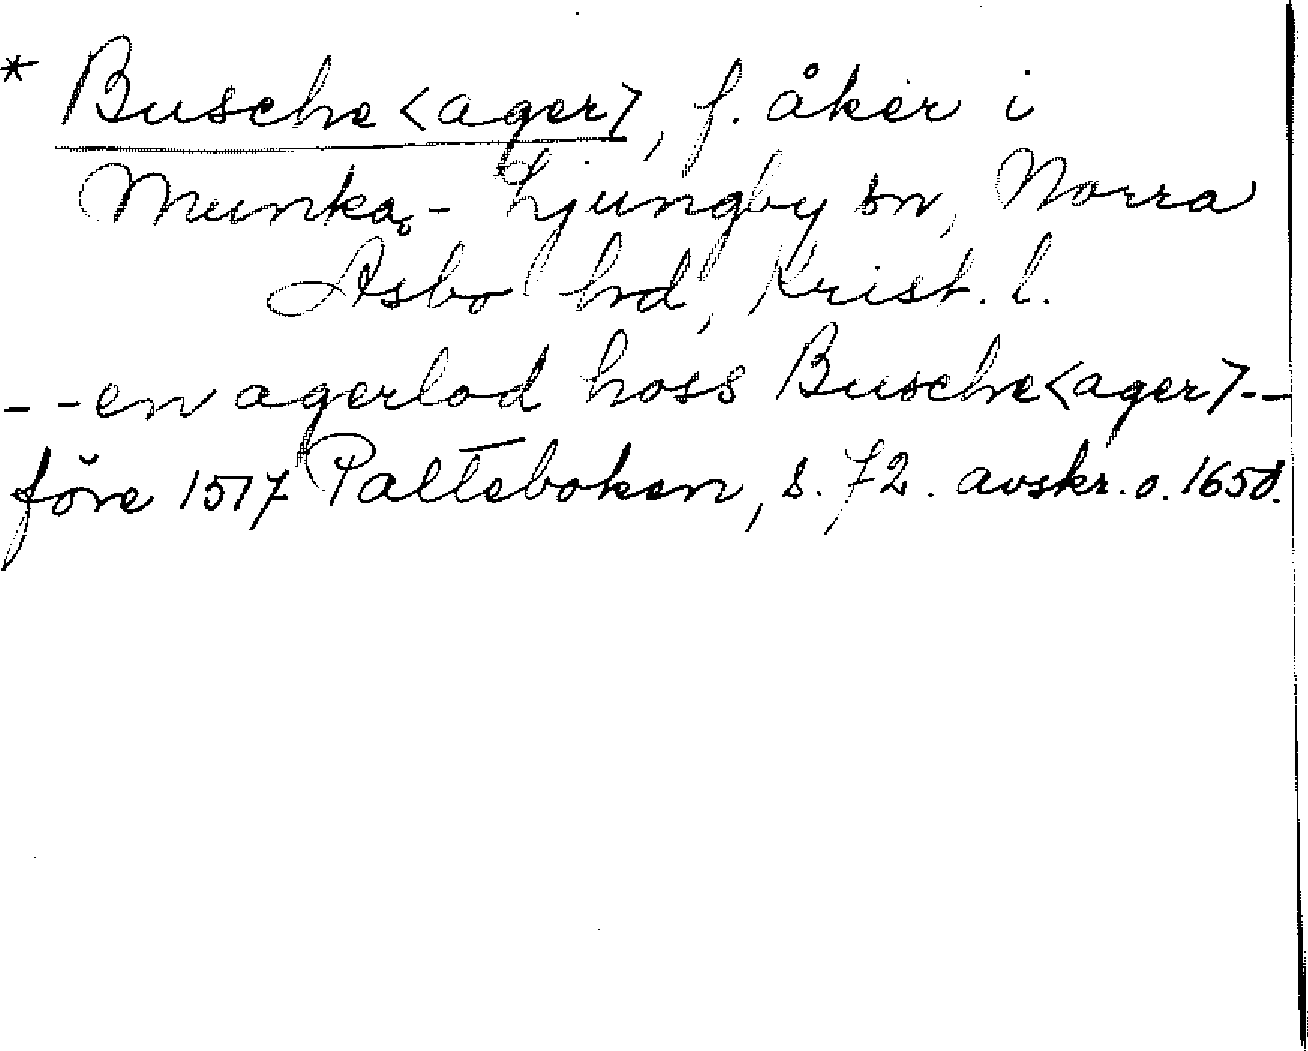 * Busche<ager>, f. åker i
Munka-Ljungby sn, Norra
Åsbo hd, Krist. l.
--en agerlod hoss Busche<ager>--
före 1517 Palteboken, s. 72. avskr. o. 1650.